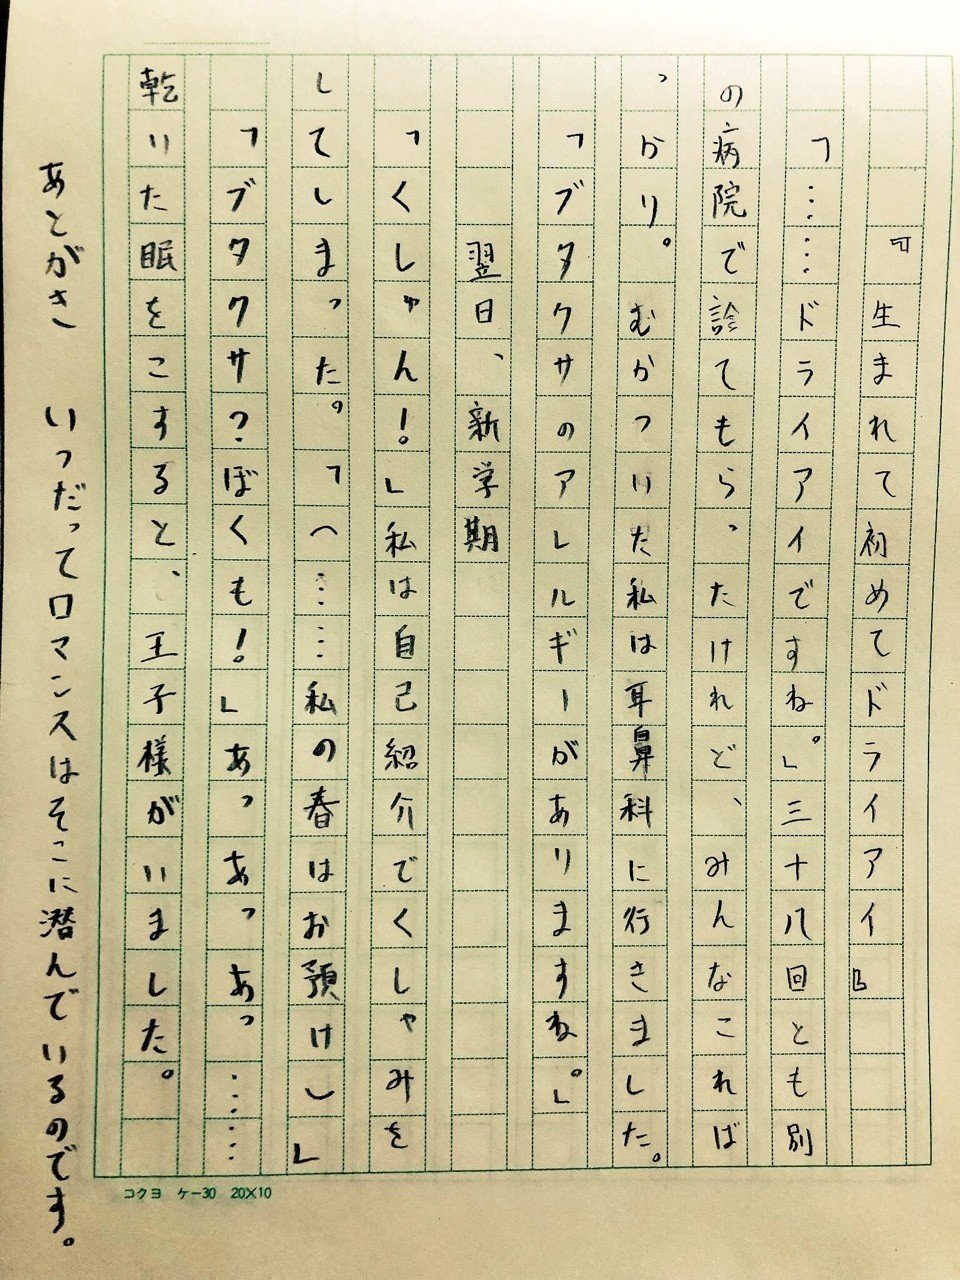 『生まれて初めてドライアイ』
「……ドライアイですね。」三十八回とも別
の病院で診てもらったけれど、みんなこれば
っかり。むかついた私は耳鼻科に行きました。
「ブタクサのアレルギーがありますね。」
翌日、新学期
「くしゃん!」私は自己紹介でくしゃみを
してしまった。「へ……私の春はお預けし」
「ブタクサ?ぼくも!」あっあっあっ……
乾いた眠をこすると、王子様がいました。
あとがき いつだってロマンスはそこに潜んでいるのです。
コクヨ ケ-30 20×10